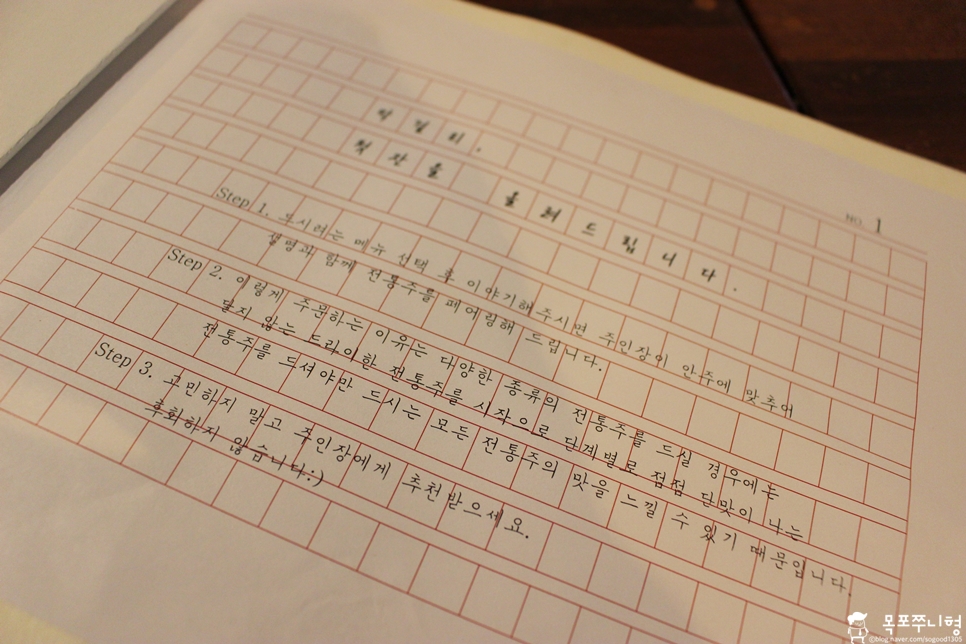 NO. 1
막걸리.
첫 잔을 올려드립니다.
Step 1. 드시려는 메뉴 선택 후 이야기해주시면 주인장이 안주에 맞추어
설명과 함께 전통주를 페어링해 드립니다.
Step 2. 이렇게 주문하는 이유는 다양한 종류의 전통주를 드실 경우에는
달지 않는 드라이한 전통주를 시작으로 단계별로 점점 단맛이 나는
전통주를 드셔야만 드시는 모든 전통주의 맛을 느낄 수 있기 때문입니다.
Step 3. 고민하지 말고 주인장에게 추천받으세요.
후회하지 않습니다:)
목포쭈니형
ⓒblog.naver.com/sogood1305